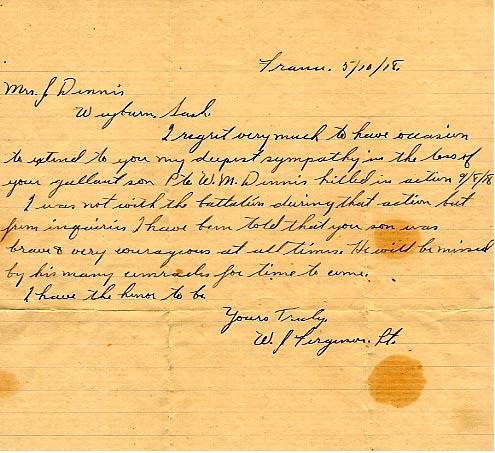 France. 5/10/18.
Mrs. J Dennis
Weyburn Sask.
I regret very much to have occasion
to extend to you my deepest sympathy in the loss of
your gallant son Pte W. M. Dennis killed in action 9/8/18
I was not with the battalion during that action but
from inquiries I have been told that you son was
brave & very courageous at all times. He will be missed
by his many comrades for time to come.
I have the honor to be
Yours Truly,
W. J Ferguson. Lt.